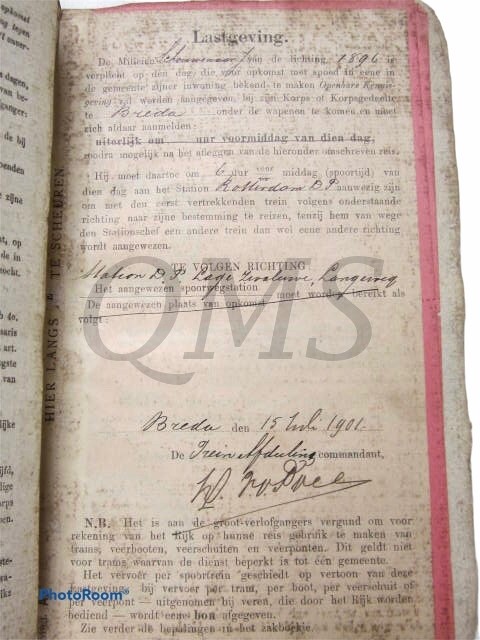 Lastgeving.
De Milicien Schouwenaar J van de lichting 1896 is
verplicht op den dag, die voor opkomst met spoed in eene in
de gemeente zijner inwoning bekend te maken Openbare Kennis-
geving zal worden aangegeven, bij zijn Korps of Korpsgedeelte
te Breda onder de wapenen te komen en moet
zich aldaar aanmelden:
uiterlijk om uur voormiddag van dien dag,
zoodra mogelijk na het afleggen van de hieronder omschreven reis.
Hij moet daartoe om 6 uur voor middag (spoortijd) van
dien dag aan het Station Rotterdam D.P. aanwezig zijn
om met den eerst vertrekkenden trein volgens onderstaande
richting naar zijne bestemming te reizen, tenzij hem van wege
den Stationschef een andere trein dan wel eene andere richting
wordt aangewezen.
TE VOLGEN RICHTING
Station D.P. Lage Zwaluwe, Langeweg
Het aangewezen spoorwegstation
moet worden bereikt als
De aangewezen plaats van opkomst
volgt:
QMS
HIER LANGS AF TE SCHEUREN.
Breda den 15 Juli 1901.
De Trein Afdeeling commandant,
N.B. Het is aan de groot-verlofgangers vergund om voor
rekening van het Rijk op hunne reis gebruik te maken van
trams, veerbooten, veerschuiten en veerponten. Dit geldt niet
voor trams waarvan de dienst beperkt is tot één gemeente.
Het vervoer per spoortrein geschiedt op vertoon van deze
lastgeving; bij vervoer per tram, per boot, per veerschuit of
per veerpont — uitgenomen bij veren, die door het Rijk worden
bediend — wordt eene bon afgegeven.
Zie verder de bepalingen in het zakboekje.
PhotoRoom